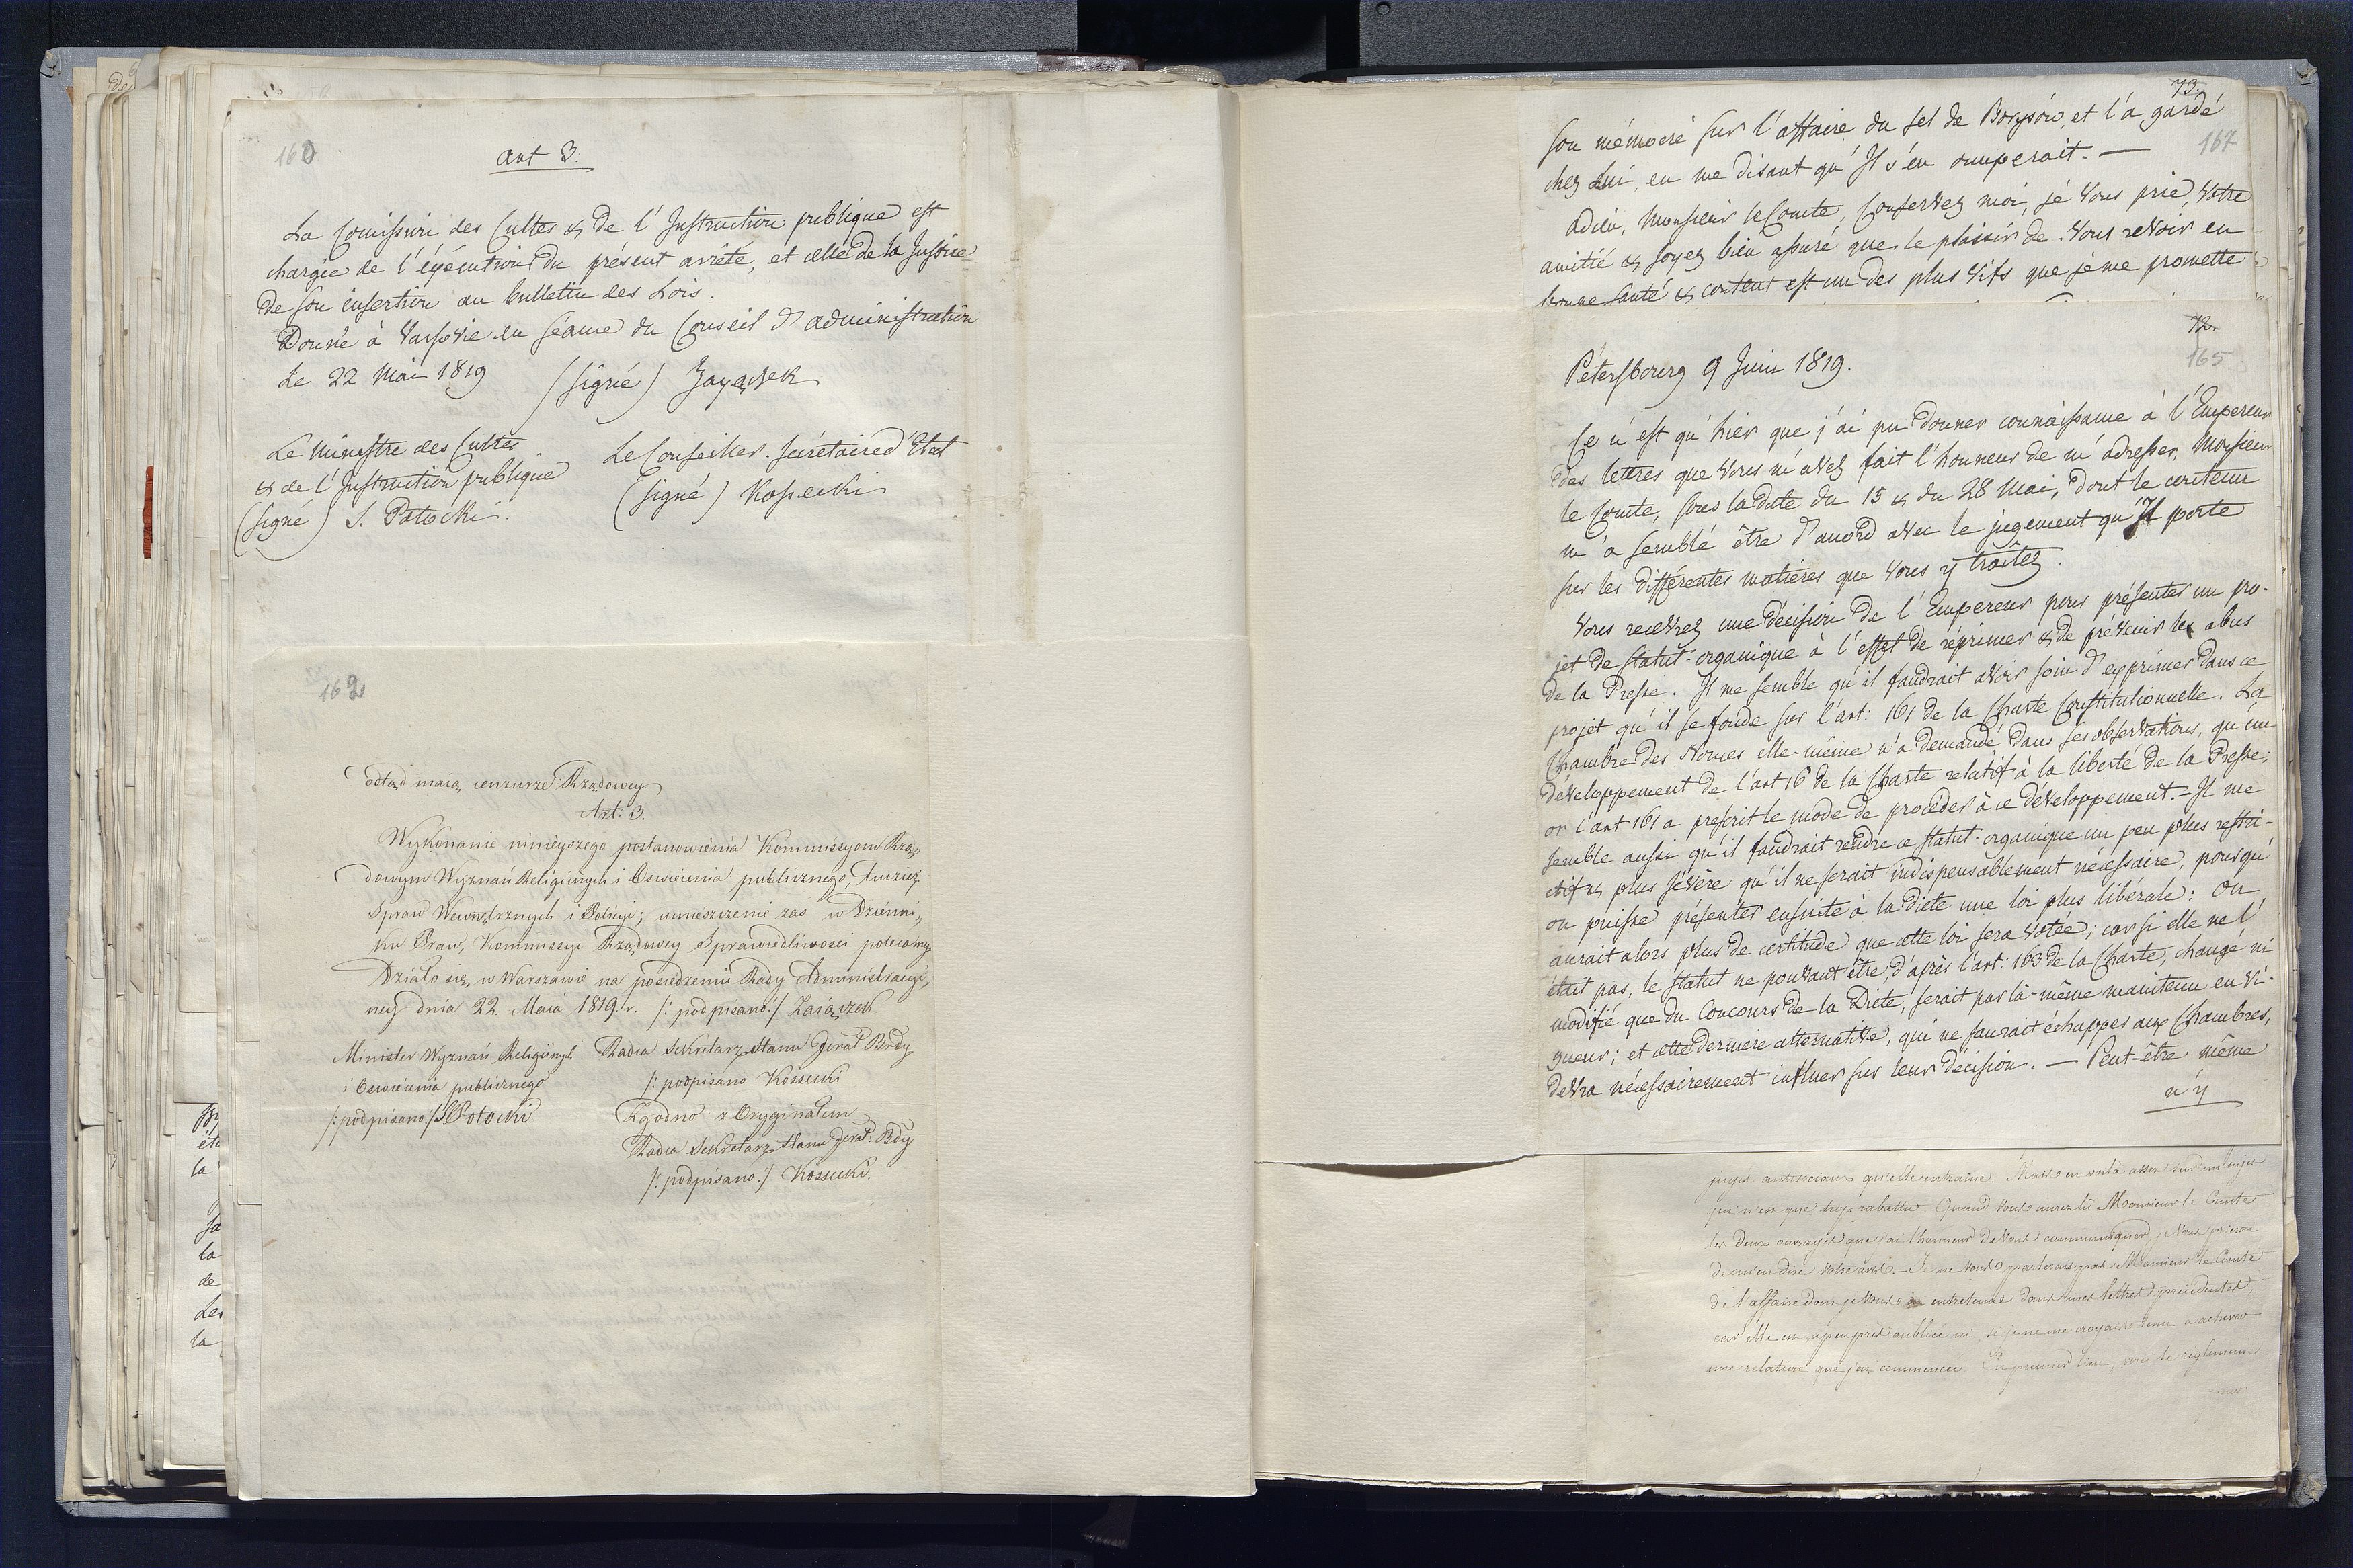 160
Art 3.
La Comission des Cultes & de l'Instruction publique est
chargée de l'éxécution du présent arrêté, et celle de la Justice
de son insertion au bulletin des Lois.
Donné à Varsovie en séance du Conseil d'administration
Le 22 Mai 1819 (signé) Zayączek
Le Ministre des Cultes
& de l'Instruction publique
(signé) S. Potocki.
Le Conseiller Sécrétaire d'Etat
(signé) Kossecki
162
odtąd maią cenzurze Rządowey
Art: 3.
Wykonanie ninieyszego postanowienia Kommissyom Rzą,
dowym Wyznań Religiynych i Oswiecenia publicznego, tudzież
Spraw Wewnętrznych i Policyi; umieszczenie zas w Dzienni,
ku Praw, Kommissyi Rządowey Sprawiedliwosci polecamy.
Działo się w Warszawie na posiedzeniu Rady Administracyi,
ney dnia 22. Maia 1819. r. /: podpisano :/ Zaiączek
Minister Wyznań Religiynych
i Oswiecenia publicznego
/: podpisano :/ S. Potocki
Radca Sekretarz Stanu Jerał Brdy
/: podpisano Kossecki
Zgodno z Oryginałem
Radca Sekretarz Stanu Jerał: Bdy
/: podpisano :/ Kossecki.
73.
167
son mémoire sur l'affaire du sel de Borysów, et l'a gardé
chez Lui, en me disant qu'Il s'en occuperait. —
Adieu, Monsieur le Comte, Conservez moi, je Vous prie, Votre
amitié & soyez bien assuré que le plaisir de Vous revoir en
bonne santé & content est un des plus vifs que je me promette
72.
165
Pétersbourg 9 Juin 1819.
Ce n'est qu'hier que j'ai pu donner connaissance à l'Empereur
des lettres que Vous m'avez fait l'honneur de m'adresser, Monsieur
le Comte, sous la date du 15 & du 28 Mai, dont le contenu
m'a semblé être d'accord avec le jugement qu'Il porte
sur les différentes matières que Vous y traîtez.
Vous recevrez une décision de l'Empereur pour présenter un pro-
jet de statut-organique à l'effet de réprimer & de prévenir les abus
de la Presse. Il me semble qu'il faudrait avoir soin d'exprimer dans ce
projet qu'il se fonde sur l'art: 161 de la Charte Constitutionnelle. La
Chambre des Nonces elle-même n'a demandé, dans ses observations, qu'un
développement de l'art 16 de la Charte relatif à la liberté de la Presse;
or l'art 161 a prescrit le mode de procéder à ce développement. — Il me
semble aussi qu'il faudrait rendre ce statut-organique un peu plus restri-
ctif & plus sévère qu'il ne serait indispensablement nécessaire, pour qu'
on puisse présenter ensuite à la diète une loi plus libérale: On
aurait alors plus de certitude que cette loi sera votée; car si elle ne l'
était pas, le statut ne pouvant être, d'après l'art: 163 de la Charte, changé ni
modifié que du Concours de la Diète, serait par là-même maintenu en vi-
gueur; et cette dernière alternative, qui ne saurait échapper aux Chambres,
devra nécessairement influer sur leur décision. — Peut-être même
n'y
jugés antisociaux qu'elle entraine. Mais en voilà assez sur un sujet
qui n'est que trop rabattu. Quand Vous aurez lu Monsieur le Comte
les deux ouvrages que j'ai l'honneur de Vous communiquer, je Vous prierai
de m'en dire Votre avis. — Je ne Vous parlerais pas Monsieur le Comte
de l'affaire dont je Vous ai entretenu dans mes lettres précédentes,
car elle est à peu près oubliée ici, si je ne me croyais tenu à achever
une relation que j'ai commencée. En premier lieu, voici le réglement